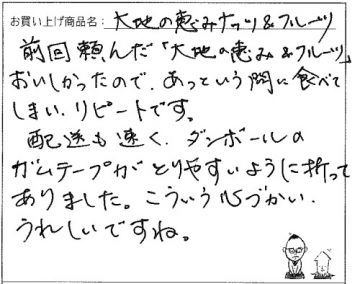 お買い上げ商品名: 大地の恵みナッツ&フルーツ
前回頼んだ「大地の恵み&フルーツ」
おいしかったので、あっという間に食べて
しまい、リピートです。
配送も速く、ダンボールの
ガムテープがとりやすいように折って
ありました。こういう心づかい、
うれしいですね。